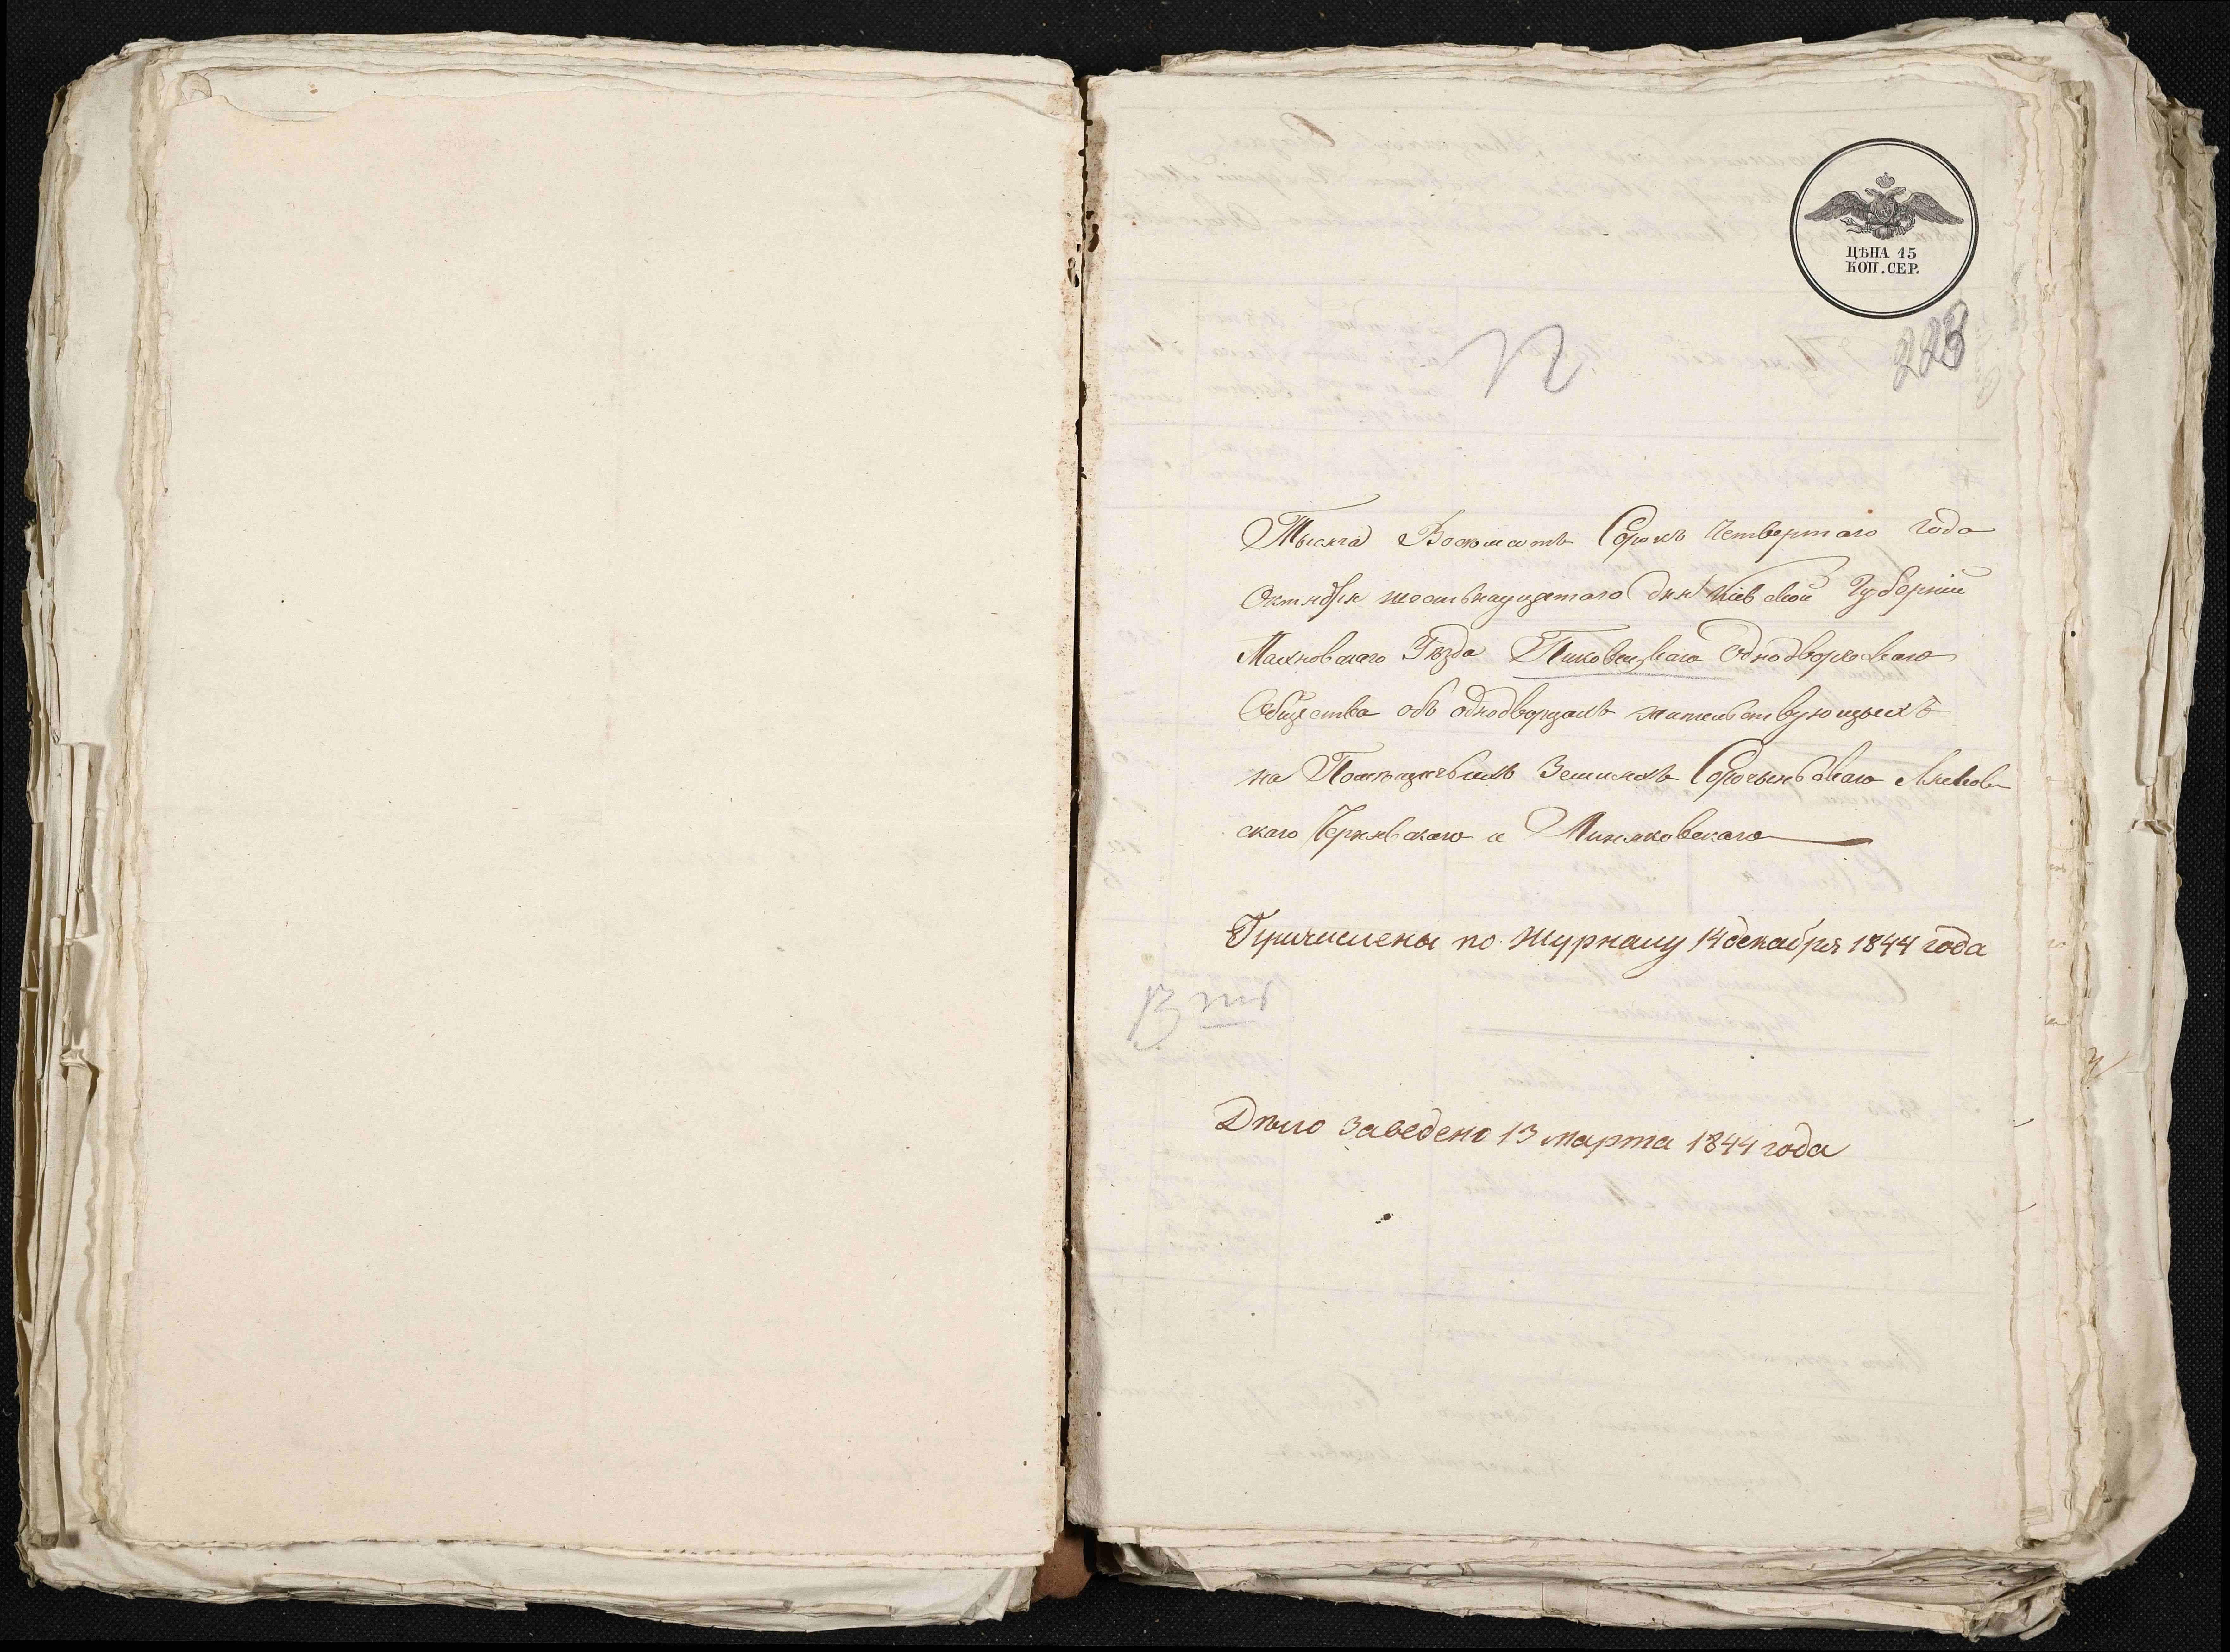 ЦѢНА 15
КОП. СЕР.
223
Тысяча Восемсотъ Сорокъ Четвертаго Года
Октября шестьнацятаго дня Кіевской Губерніи
Махновскаго Уѣзда Пиковецкаго Однодворческаго
Общества объ однодворцахъ жительствующихъ
на Помѣщичьихъ Земляхъ
скаго Чернявскаго и
Причислены по журналу 14 декабря 1844 года
Дѣло заведено 13 марта 1844 года